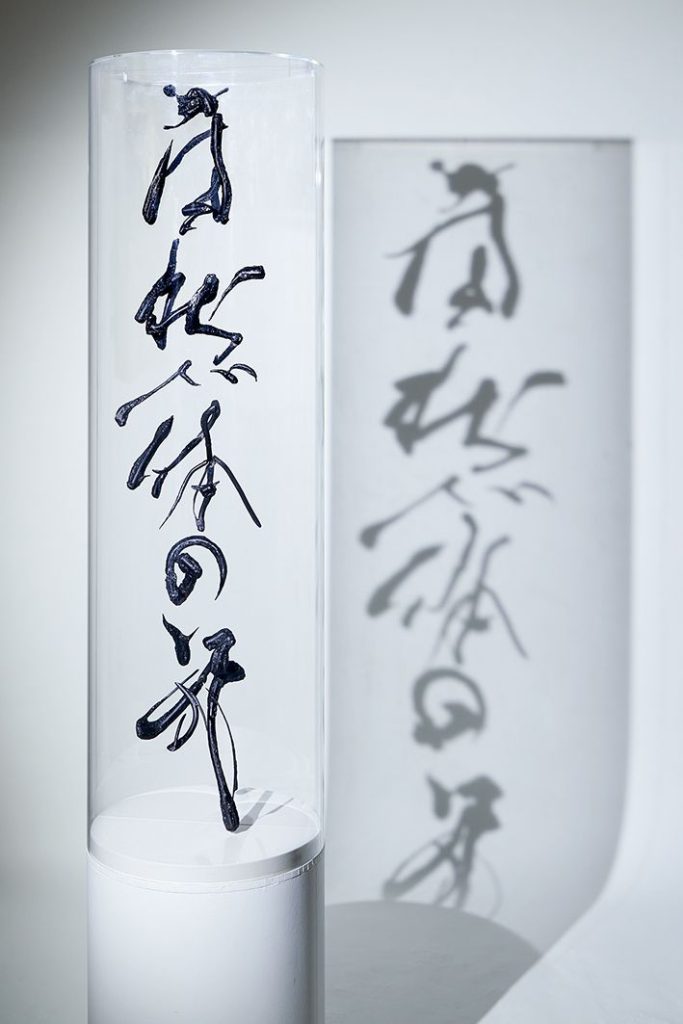 自然体の